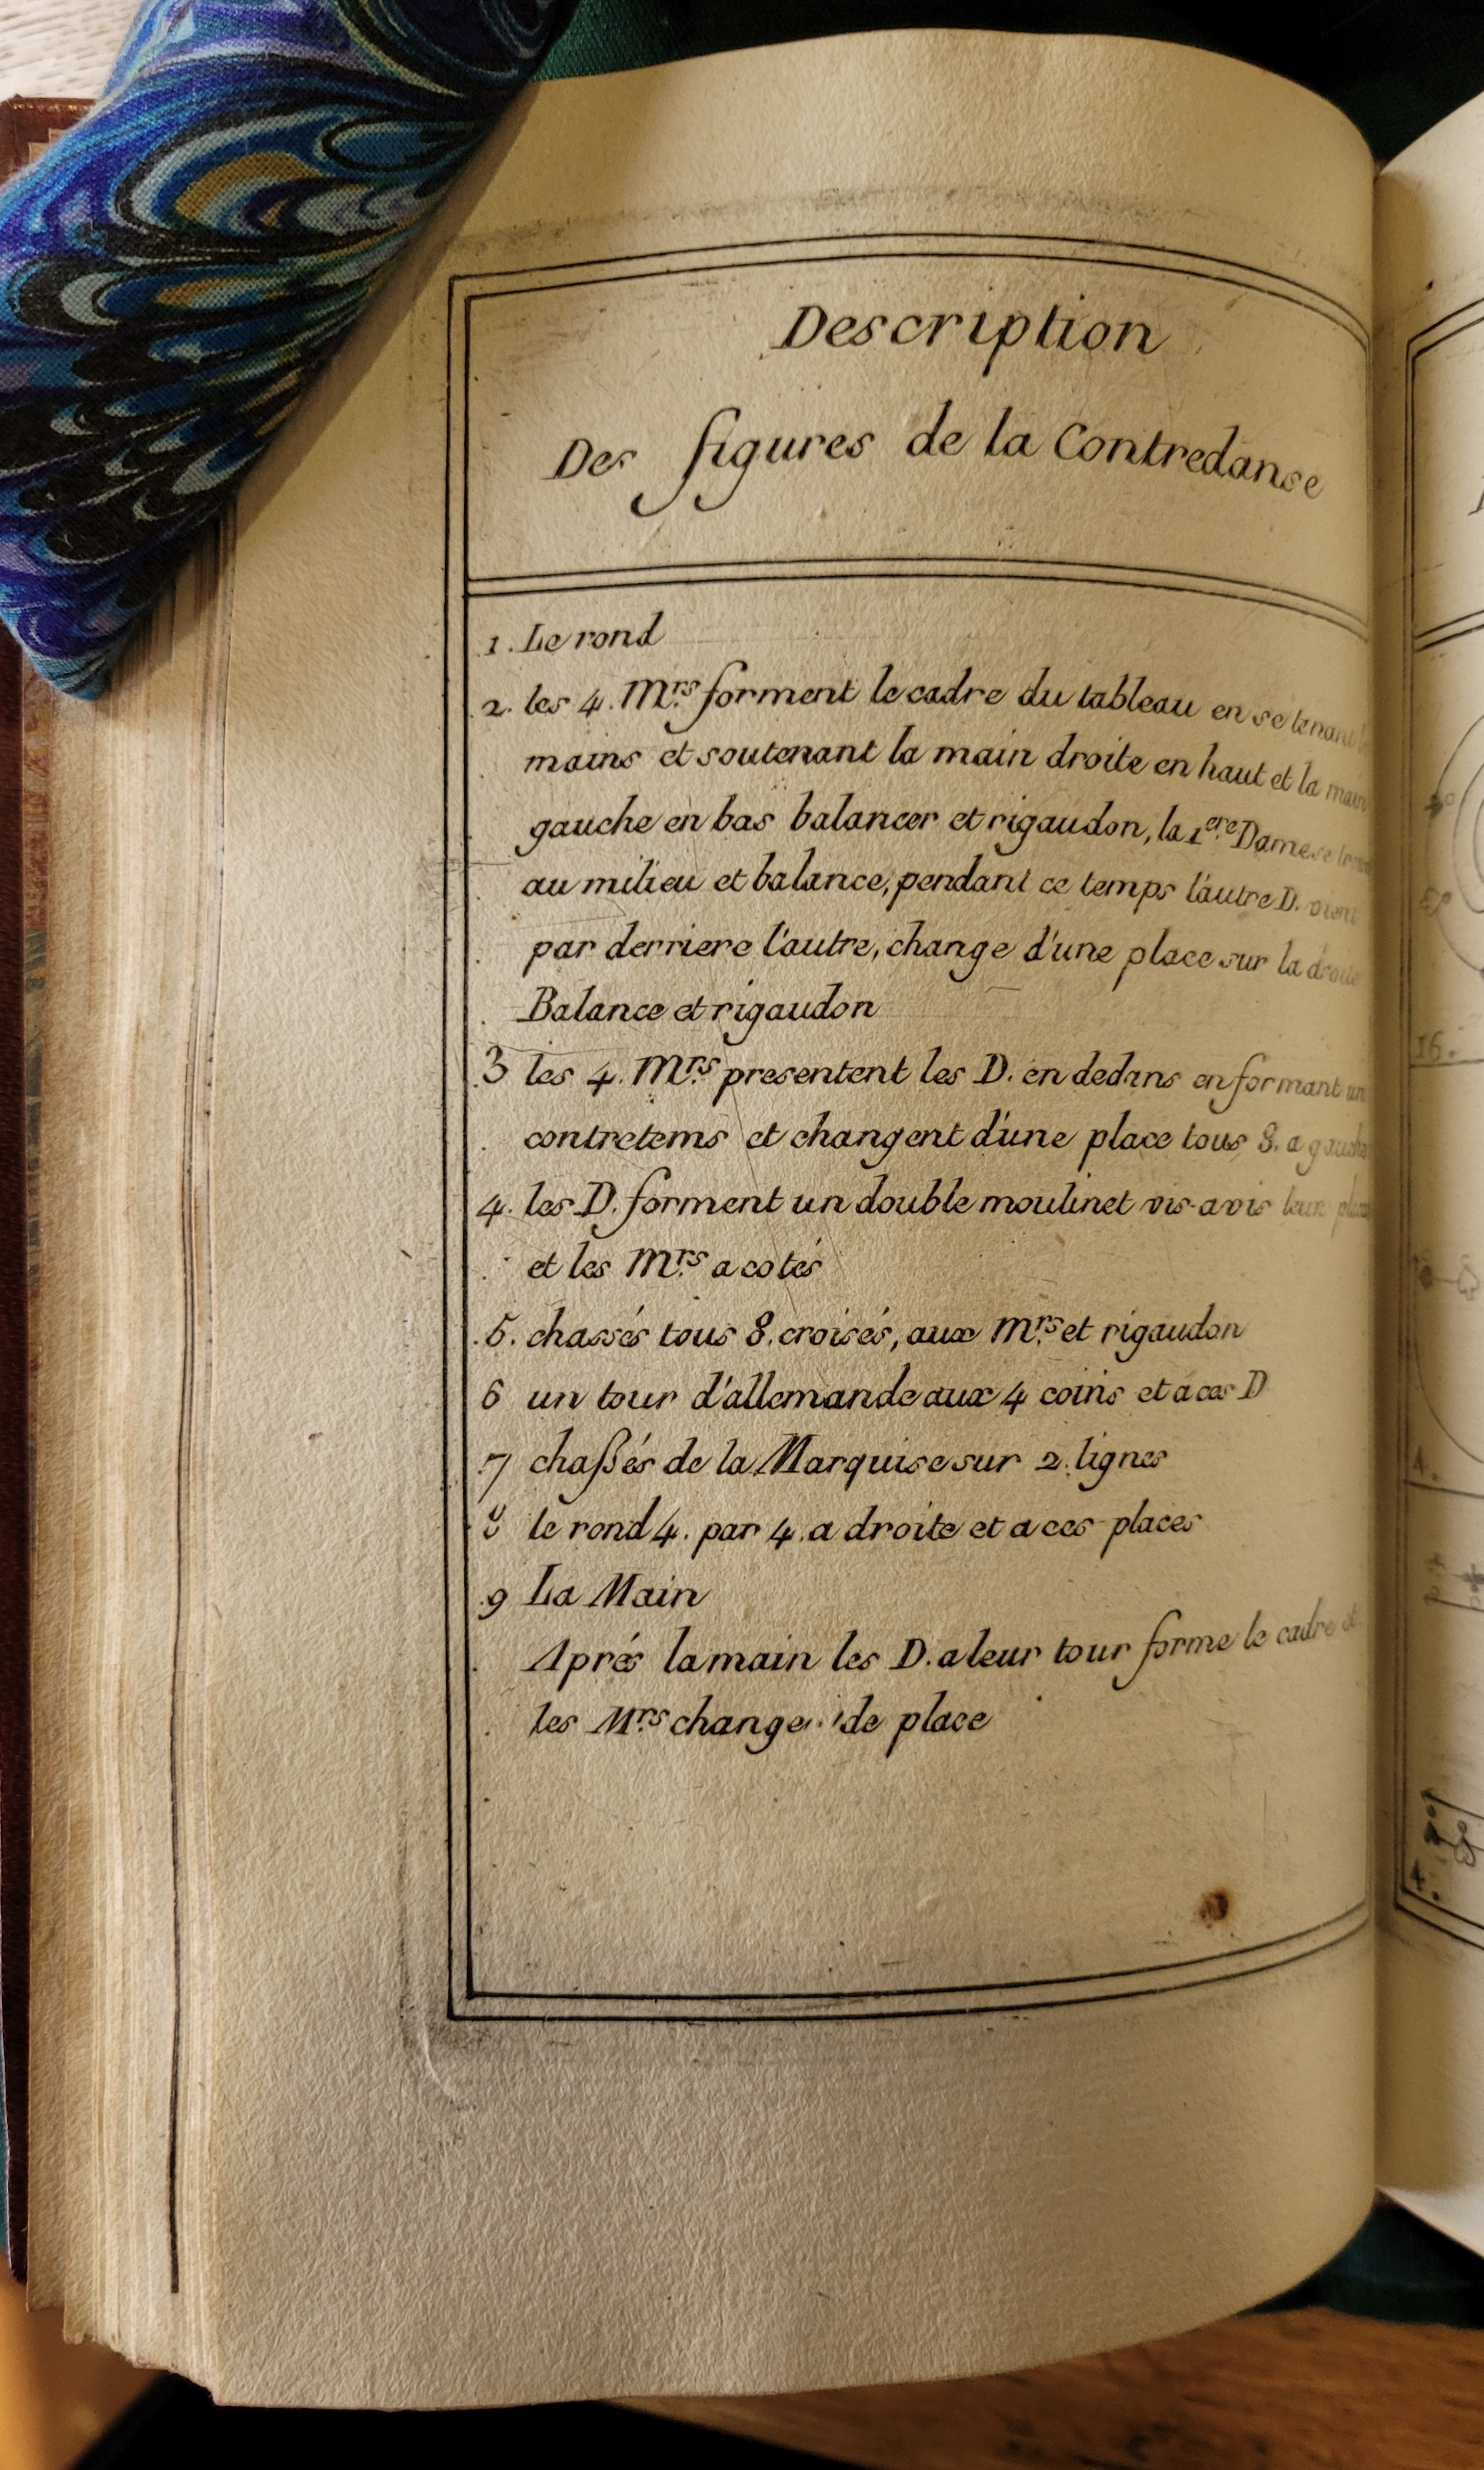 Description
Des figures de la Contredanse
1. Le rond
2. les 4. Mrs. forment le cadre du tableau en se tenant
mains et soutenant la main droite en haut et la main
gauche en bas balancer et rigaudon, la 1ere Dame se
au milieu et balance, pendant ce temps l'autre D. vient
par derriere l'autre, change d'une place sur la droite
Balance et rigaudon
3 les 4. Mrs. presentent les D. en dedans en formant un
contretems et changent d'une place tous 8. a gauche
4. les D. forment un double moulinet vis-avis leur place
et les Mrs. a cotés
5. chassés tous 8. croisés, aux Mrs. et rigaudon
6 un tour d'allemande aux 4 coins et a ces D
7 chaßés de la Marquise sur 2. lignes
8 le rond 4. par 4. a droite et a ces places
9 La Main
Aprés la main les D. a leur tour forme le cadre et
les Mrs. change de place
16.
4.
4.